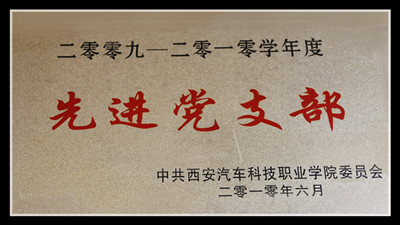 二零零九—二零一零学年度
先进党支部
中共西安汽车科技职业学院委员会
二零一零年六月